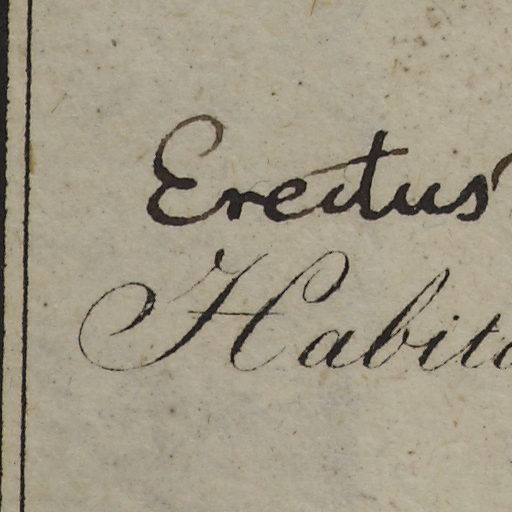 Erectus
Habita